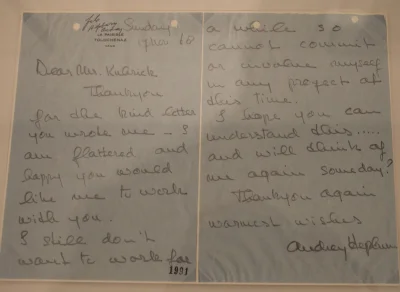 Sunday
Dear Mr. Kubrick
Thankyou
for the kind letter
you wrote me - I
am flattered and
happy you would
like me to work
with you.
I still don't
want to work for
1991
a while so
cannot commit
or involve myself
in any project at
this time.
I hope you can
understand this.....
and will think of
me again someday?
Thankyou again
warmest wishes
Audrey Hepburn